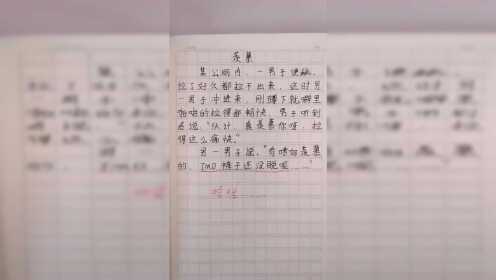 羡慕
某公厕内，一男子便秘，
拉了好久都拉不出来，这时另
一男子冲进来，刚蹲下就噼里
啪啦的拉得那畅快，男子听到
感说："伙计，真羡慕你呀，拉
得这么痛快。"
另一男子说："有啥好羡慕
的，TMD裤子还没脱呢……"
哈哈……